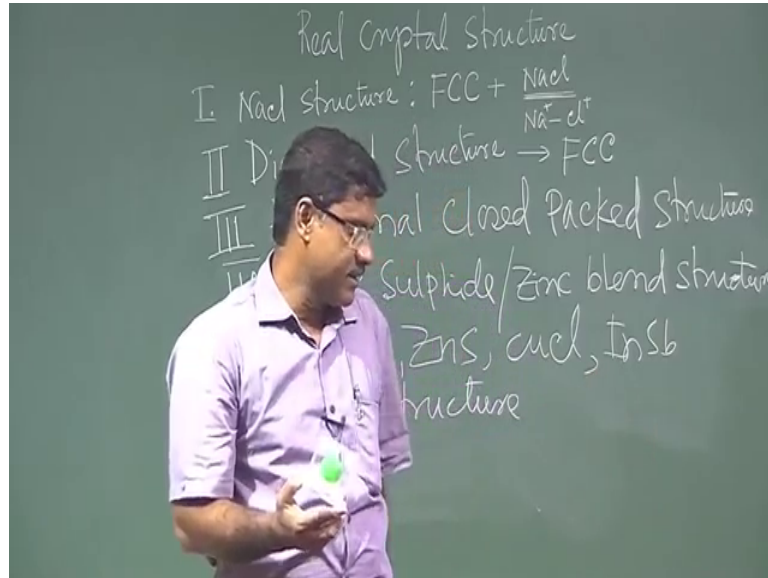 Real Cryptal Structure
I. Nacl Structure : FCC + Nacl
Na⁺- cl⁺
II Di d Structure → FCC
III nal Closed Packed Structure
Sulphide/Zinc blend structure
ZnS, cucl, InSb
tructure